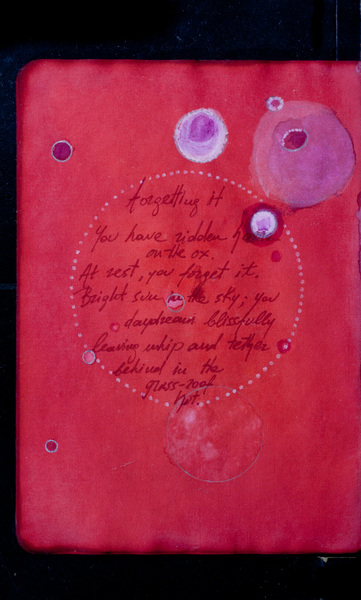 forgetting it
You have ridden
on the ox.
At rest, you forget it.
Bright sun in the sky; you
daydream blissfully
leaving whip and tether
behind in the
grass-roof
hut.